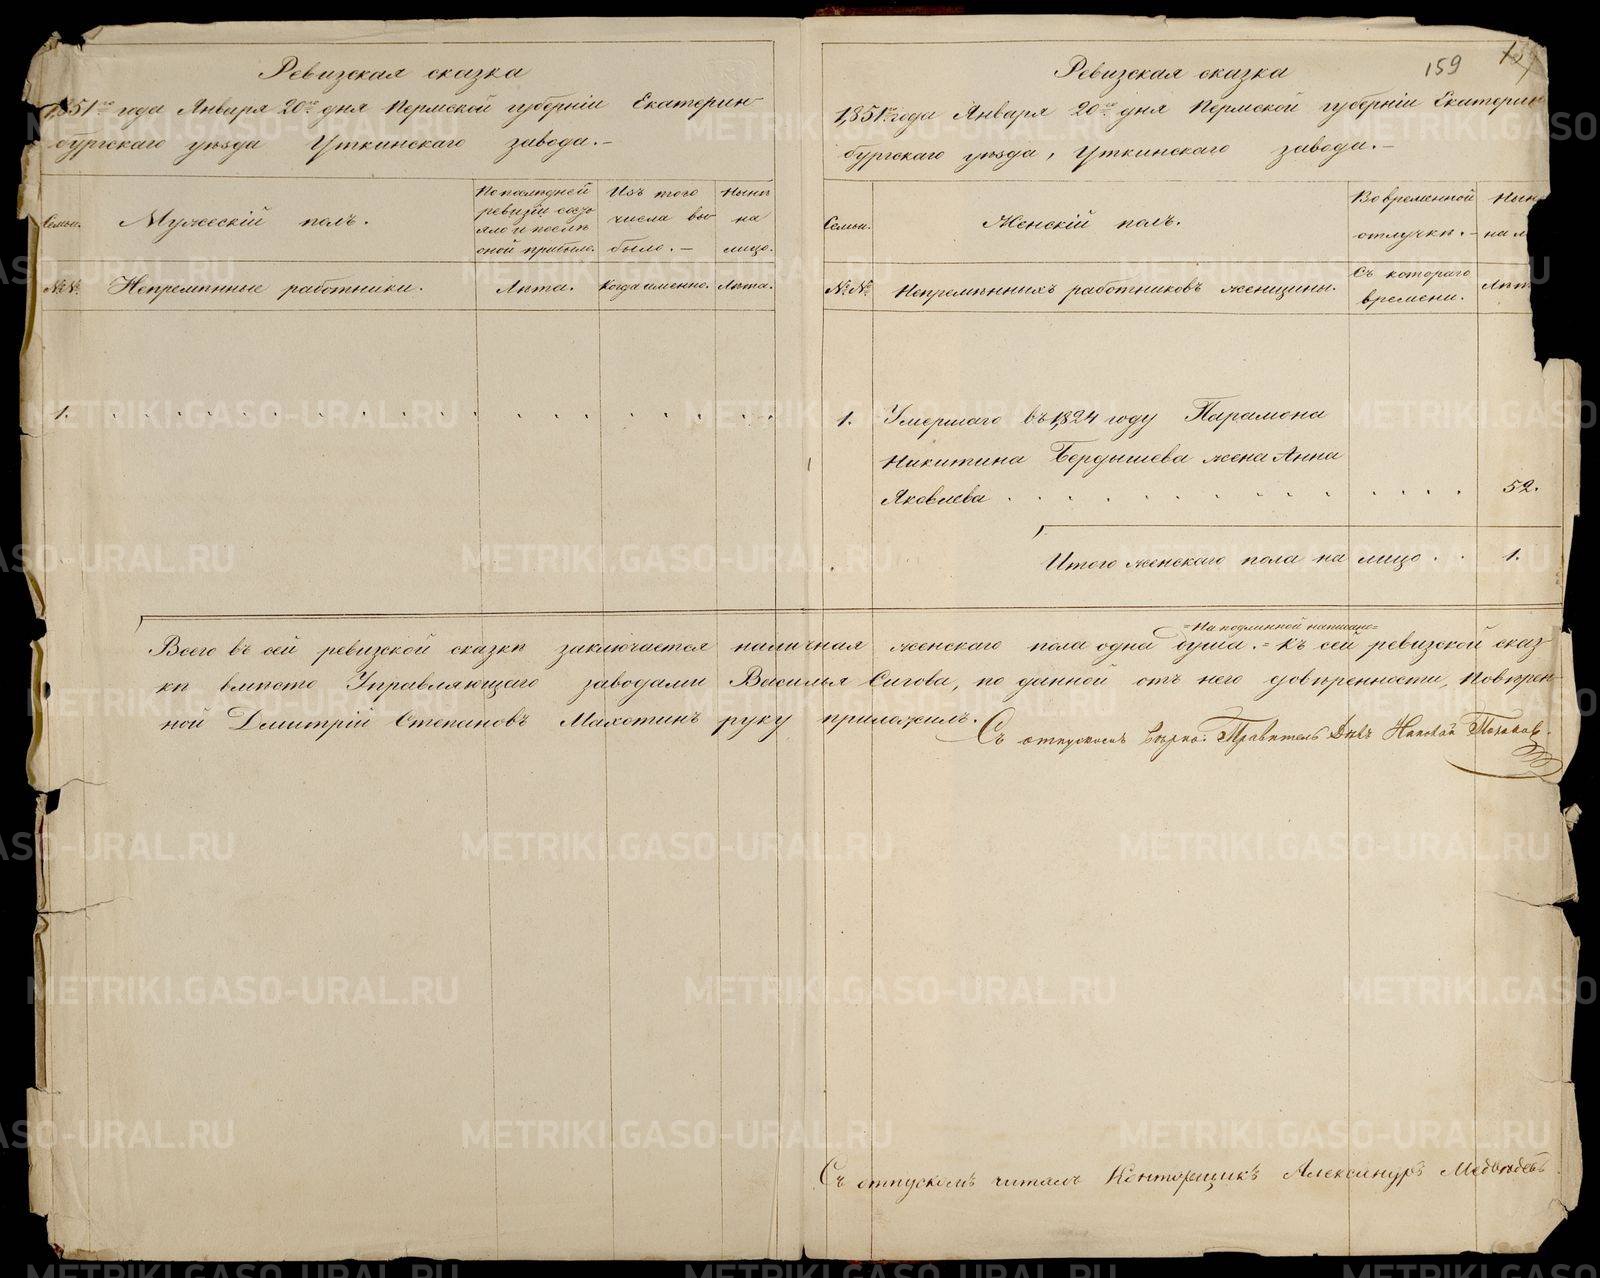 Ревизская сказка
1851го года Января 20го дня Пермской губерніи Екатерин-
бургскаго уѣзда Уткинскаго завода.-
Семьи.
Мужескій полъ.
По последней
ревизіи состо
яло и послѣ
оной прибыло.
Изъ того
числа вы-
было.-
Нынѣ
на
лицо.
№№
Непремѣнные работники.
Лѣта.
Когда именно.
Лѣта.
1.
159
Ревизская сказка
1851го года Января 20го дня Пермской губерніи Екатерин
бургскаго уѣзда, Уткинскаго завода.-
Семьи.
Женскій полъ.
Во временной
отлучкѣ.-
Нын
на л
№№
Непремѣнныхъ работниковъ женщины.
Съ котораго
времени.
Лѣт
1. Умершаго въ 1824 году Парамона
Никитина Бердышева жена Анна
Яковлева 52.
Итого женскаго пола на лицо 1.
=На подлинной написано=
Всего въ сей ревизской сказкѣ заключается наличная женскаго пола одна душа.= Къ сей ревизской сказ-
кѣ вмѣсто Управляющаго заводами Василья Сигова, по данной отъ него довѣренности, Повѣрен-
ной Дмитрій Степановъ Махотинъ руку приложилъ.
Съ отпускомъ вѣрно: Правитель Дѣлъ Николай
Съ отпускомъ читалъ Конторщикъ Александръ Медвѣдевъ
METRIKI.GASO-URAL.RU